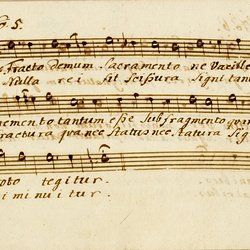 G 5.
Fracto demum Sacramento ne Vacille
Nulla rei fit Scissura Signi tan
memento tantum esse Sub fragmento quan
fractura qua nec Status nec statura Sig
toto tegitur.
iminuitur.